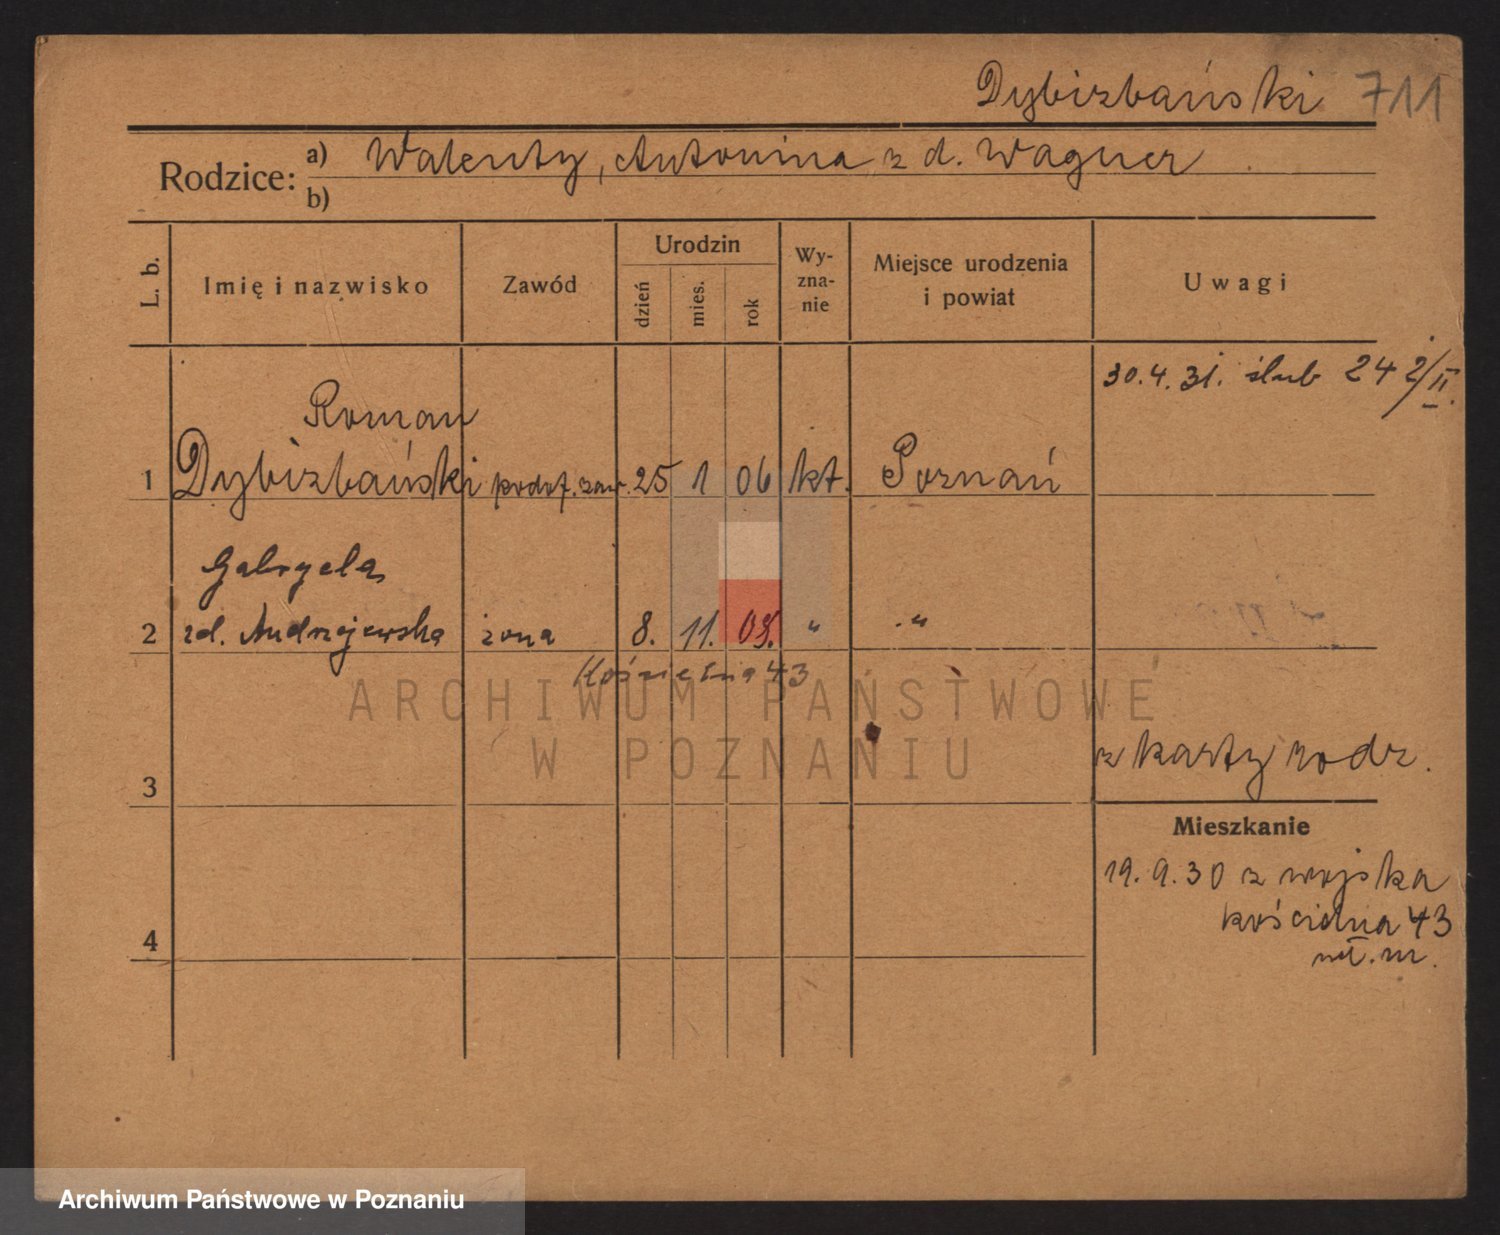 Dybizbański 711
Rodzice: a) Walenty, Antonina z d. Wagner
b)
L. b. Imię i nazwisko Zawód Urodzin dzień mies. rok Wy-zna-nie Miejsce urodzenia i powiat Uwagi
30.4.31. ślub 24 2/II.
Roman
1 Dybizbański podof. zaw. 25 1 06 kt. Poznań
Gabryela
2 zd. Andrzejewska żona 8. 11. 09. " "
Kościelna 43
ARCHIWUM PAŃSTWOWE
W POZNANIU
z karty rodz.
3
Mieszkanie
19.9.30 z wojska
kościelna 43
4
Archiwum Państwowe w Poznaniu